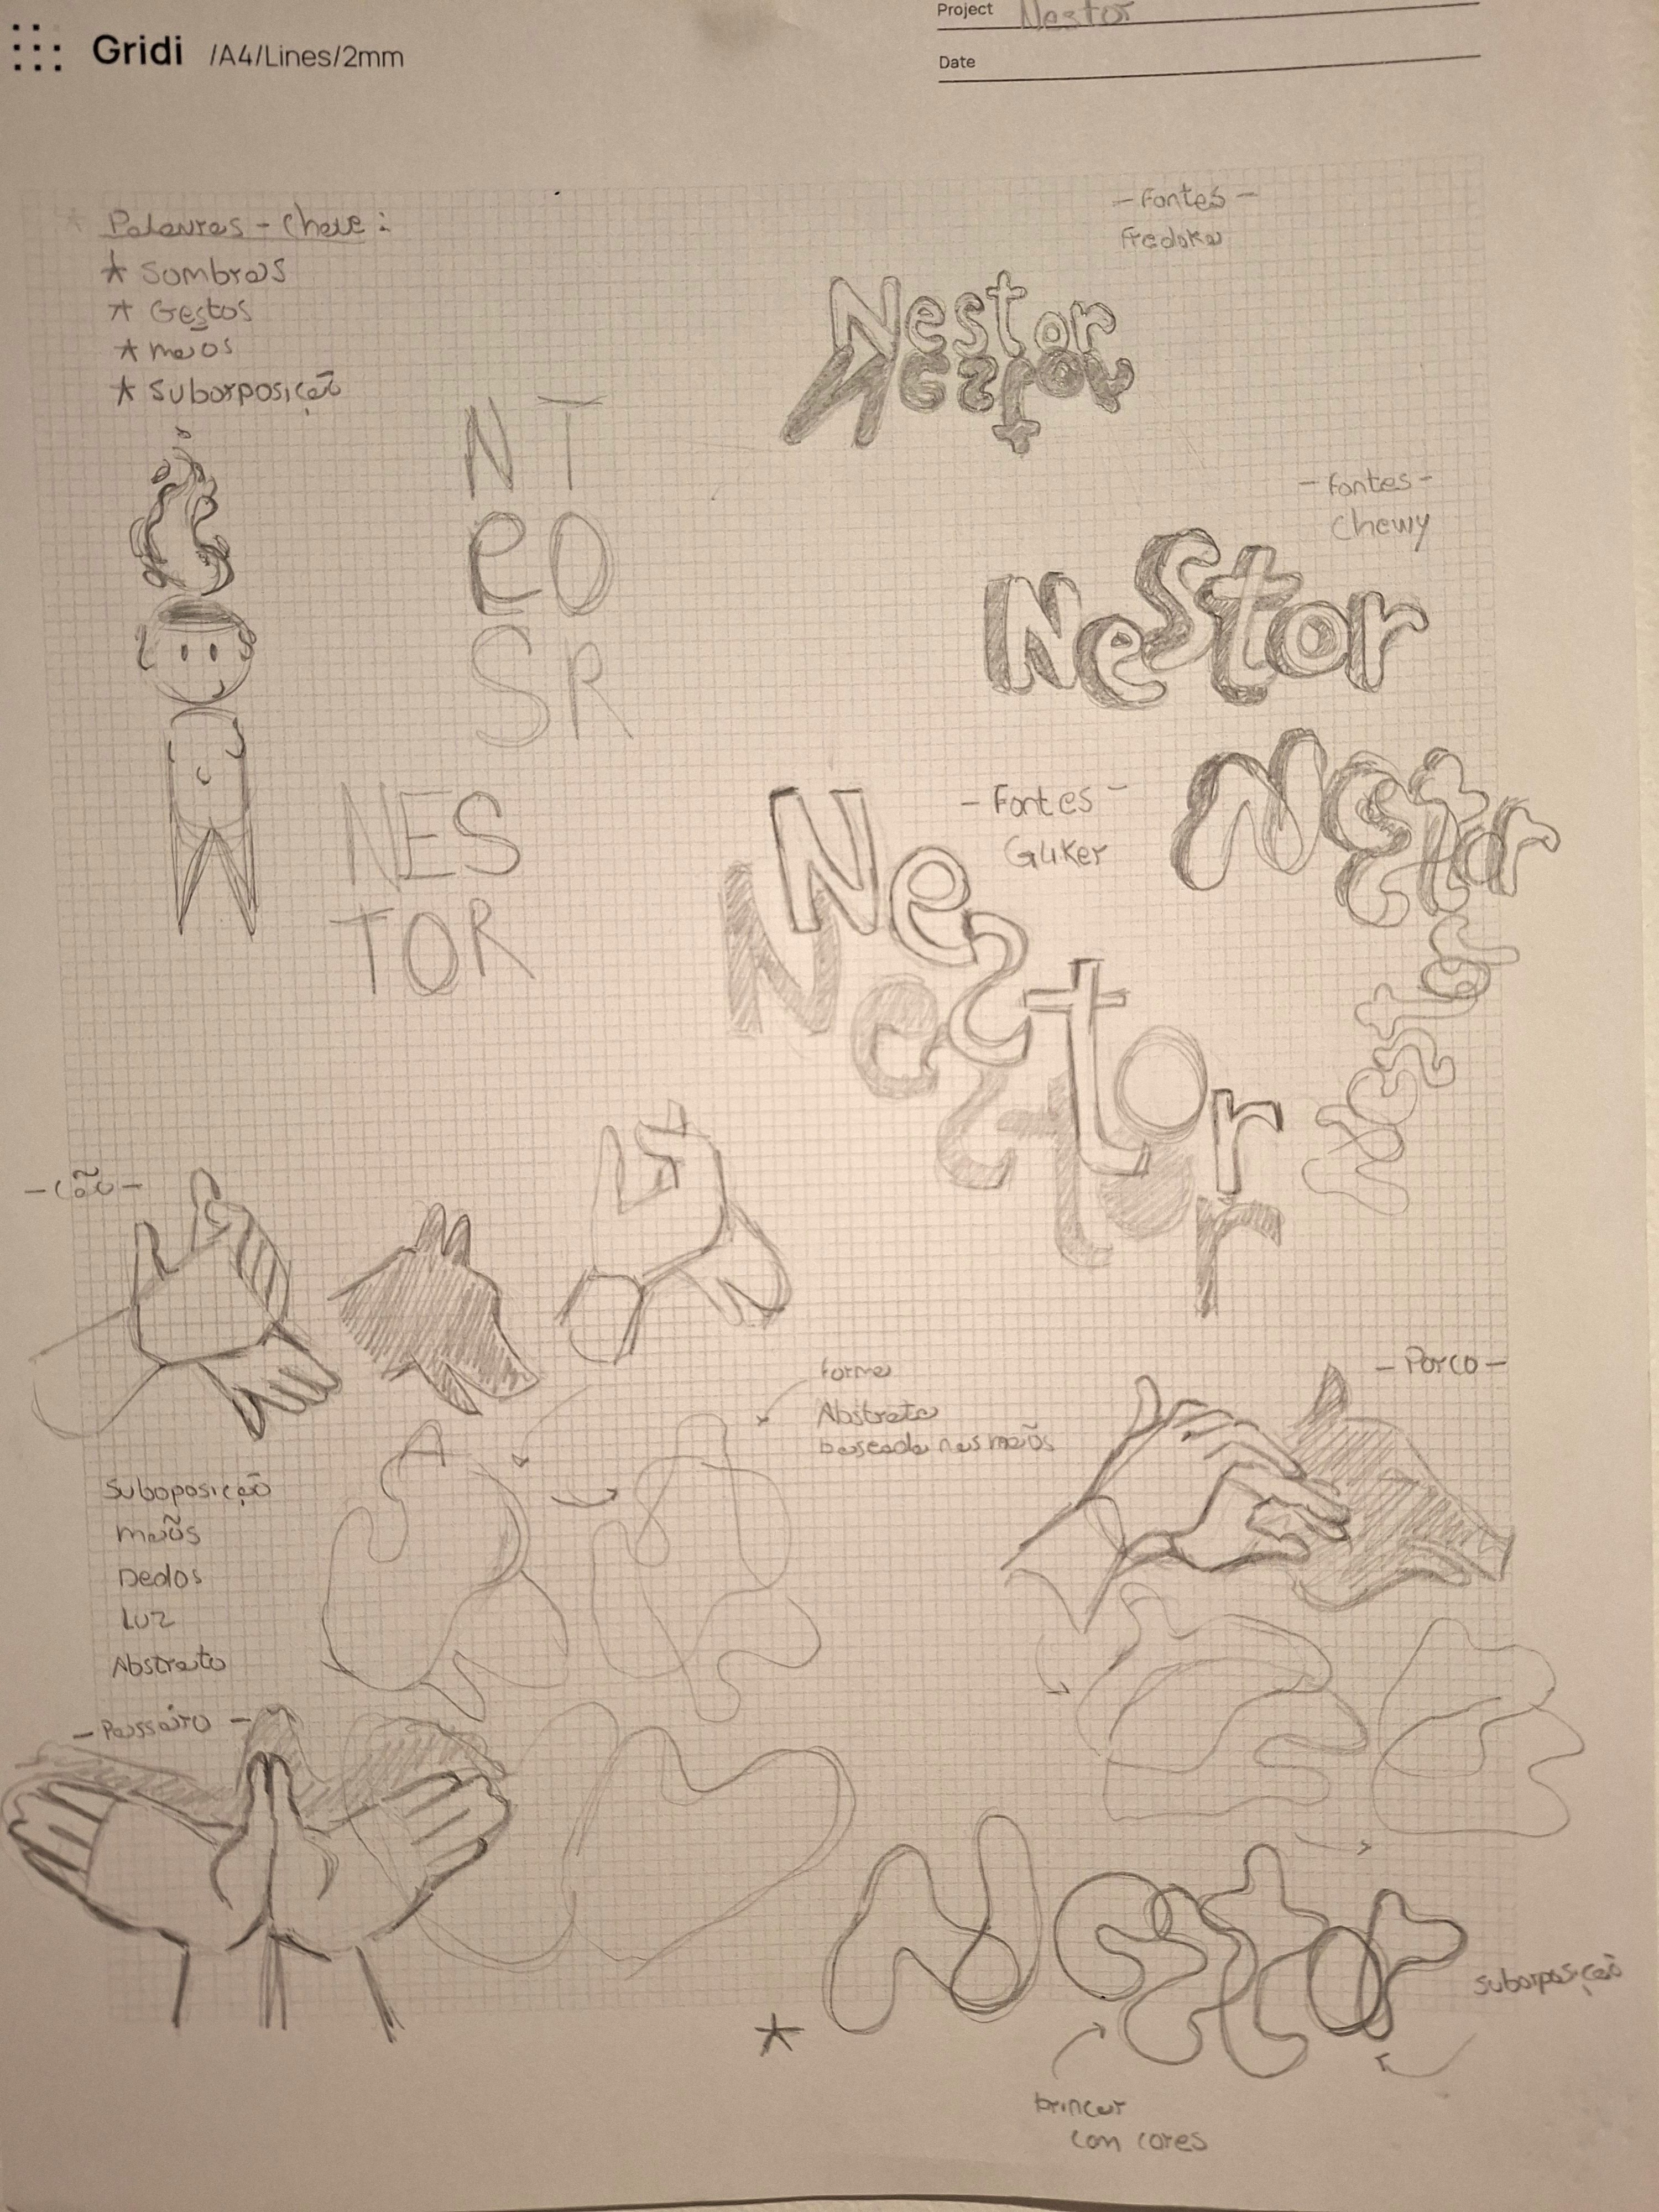 Gridi /A4/Lines/2mm
Project Nestor
Date
Palavras - Chave :
* Sombras
* Gestos
* mãos
* Suborposição
- Fontes -
Fredoka
Nestor
Nestor
N T
e O
S R
- Fontes -
Chewy
NeStor
NES
TOR
- Fontes -
Gliker
Nestor
Nestor
Nestor
Nestor
- Cão -
- Porco -
Forma
Abstrata
baseada nas mãos
Suboposição
mãos
Dedos
Luz
Abstrato
- Passairo -
Nestor
suborposição
*
brincar
com cores